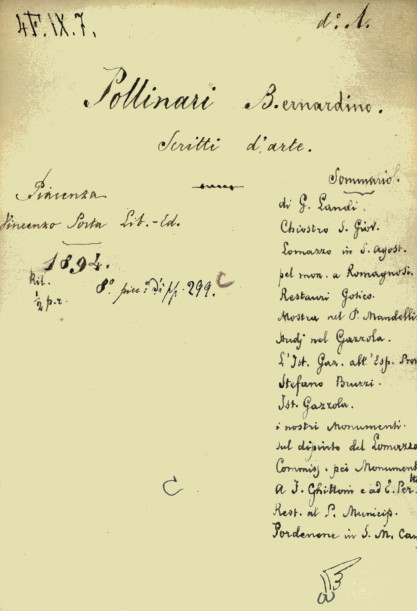 4F.IX.7.
d.º 1.
Pollinari Bernardino.
Scritti d'arte.
Piacenza
Vincenzo Porta Lit.-Ed.
1894.
Ril.
½ p.r.
8º picc.º di pp. 299.
Sommario.
di G. Landi.
Chiostro S. Giov.
Lomazzo in S. Agost.
pel mon. a Romagnosi.
Restauri Gotico.
Mostra nel P. Mandelli
nel Gazzola.
L'Ist. Gaz. all'Esp.
Stefano Bruzzi.
Ist. Gazzola.
i nostri Monumenti.
sul dipinto del Lomazzo
Commiss. pei Monument
A J. Ghittoni e ad E. Per
Rest. al P. Municip.
Pordenone in S. M. Cam